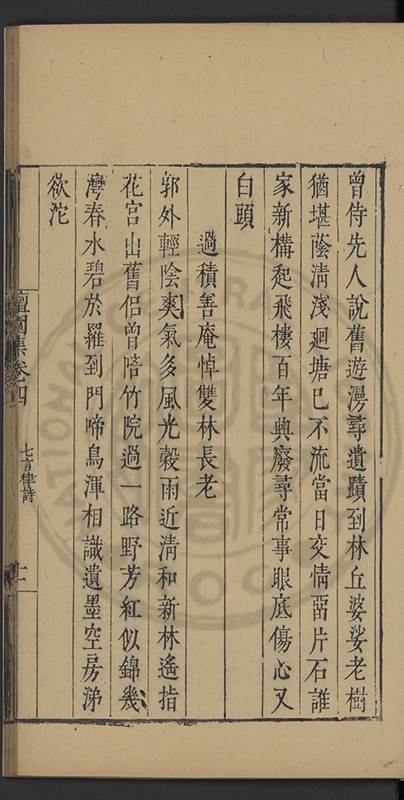 曾侍先人說舊遊漫尋遺蹟到林丘婆娑老樹
猶堪蔭清淺廻塘已不流當日交情畱片石誰
家新構起飛樓百年興廢尋常事眼底傷心又
白頭
過積善庵悼雙林長老
郭外輕陰爽氣多風光穀雨近清和新林遙指
花宮出舊侶曾陪竹院過一路野芳紅似錦幾
灣春水碧於羅到門啼鳥渾相識遺墨空房涕
欲沱
園集卷四
七言律詩